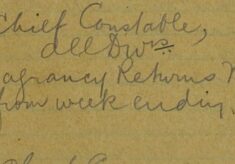 Chief Constable,
All Divns.
Vagrancy Returns
from week ending